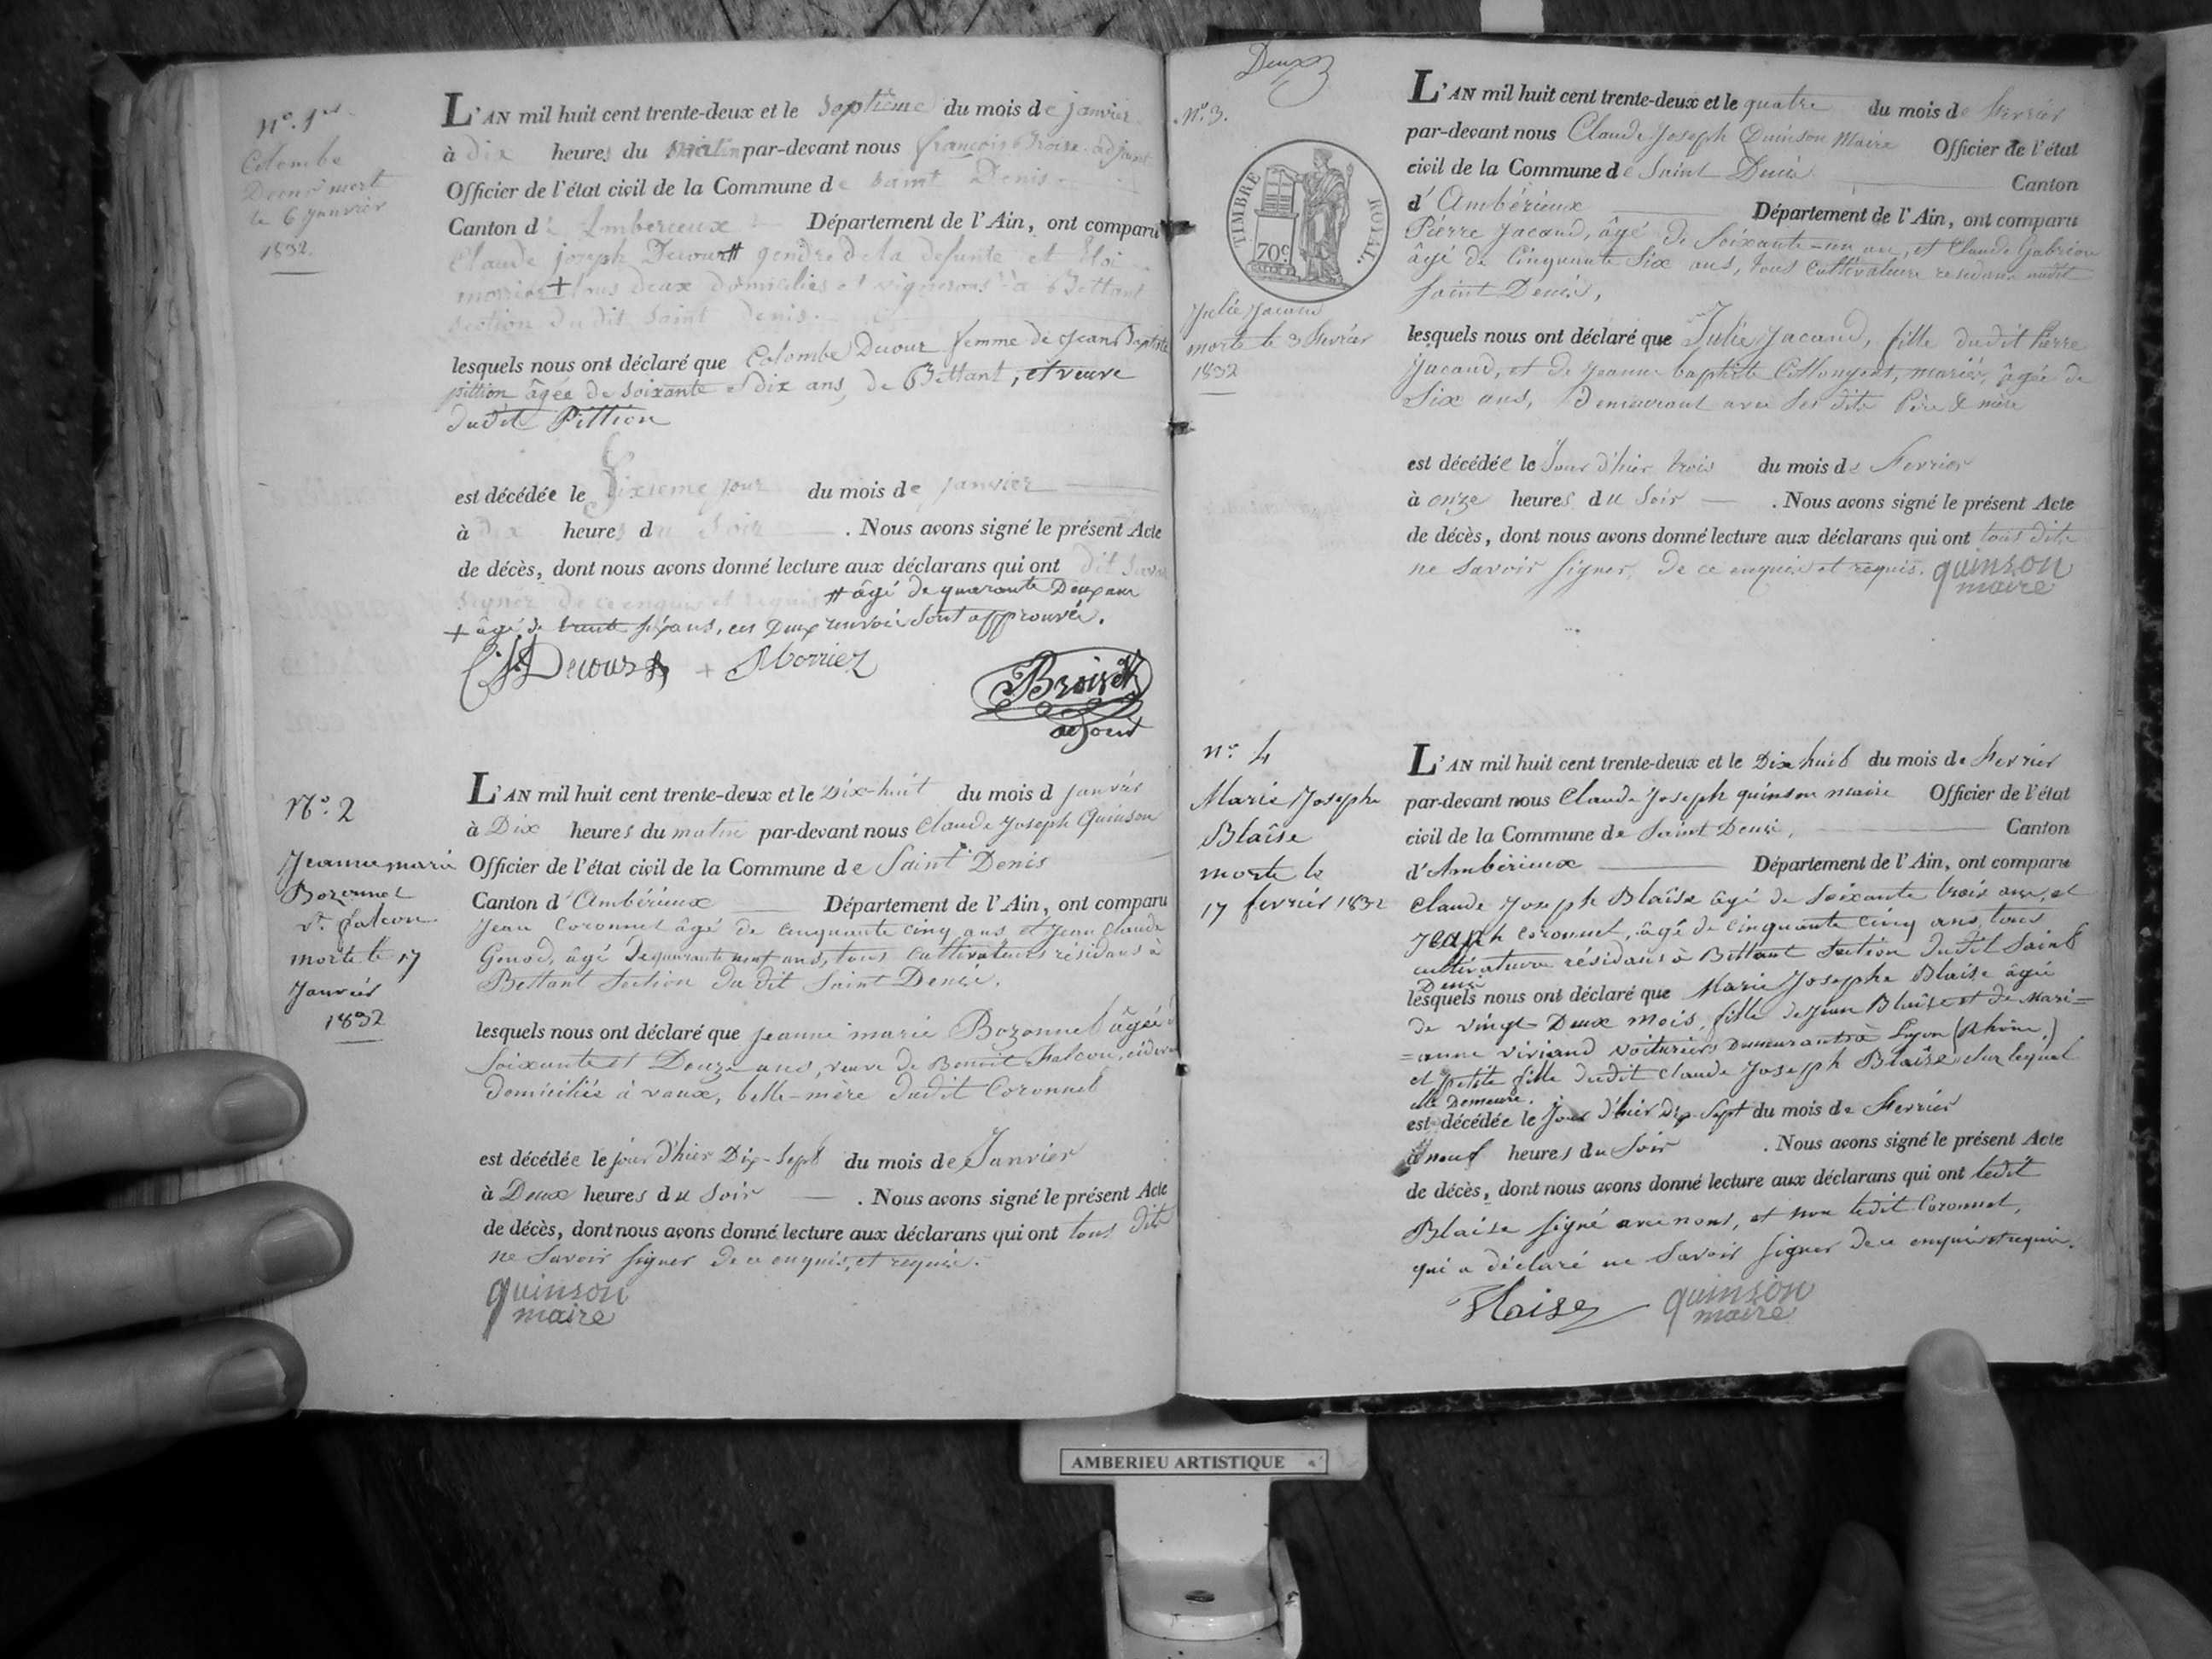 N.º 1er
Colombe
Decour morte
le 6 janvier
1832.
L'AN mil huit cent trente-deux et le septième du mois de janvier
à dix heures du matin par-devant nous françois Broise adjoint
Officier de l'état civil de la Commune de Saint Denis
Canton d'Amberieux Département de l'Ain, ont comparu
Claude joseph Decour # gendre de la defunte et Eloi
morrier + tous deux domiciliés et vignerons à Bettant
section du dit Saint Denis.
lesquels nous ont déclaré que Colombe Decour femme de Jean Baptiste
pittion âgée de soixante et dix ans, de Bettant, et veuve
dudit Pittion
est décédée le Sixieme jour du mois de janvier
à dix heures du Soir . Nous avons signé le présent Acte
de décès, dont nous avons donné lecture aux déclarans qui ont dit savoir
signer de ce enquis et requis # âgé de quarante Deux ans
+ âgé de trente six ans, ces Deux renvois sont approuvés.
Decour + Morrier
Broise
adjoint
N.º 2
Jeanne marie
Bozonnet
Ve falcon
morte le 17
Janvier
1832
L'AN mil huit cent trente-deux et le Dix-huit du mois d janvier
à Dix heures du matin par-devant nous Claude Joseph Quinson
Officier de l'état civil de la Commune de Saint Denis
Canton d'Ambérieux Département de l'Ain, ont comparu
Jean Coronnel âgé de cinquante cinq ans et Jean Claude
Genod, âgé de quarante neuf ans, tous cultivateurs résidans à
Bettant Section du dit Saint Denis.
lesquels nous ont déclaré que Jeanne marie Bozonnet âgée d
Soixante et Douze ans, veuve de Benoit Falcon,
domiciliée à vaux, belle-mère dudit Coronnel
est décédée le jour d'hier Dix-Sept du mois de Janvier
à Deux heures du Soir . Nous avons signé le présent Acte
de décès, dont nous avons donné lecture aux déclarans qui ont tous dit
ne Savoir signer de ce enquis, et requis.
quinson
maire
Deux
N.º 3.
TIMBRE ROYAL.
70c
Julie Jacaud
morte le 3 fevrier
1832
L'AN mil huit cent trente-deux et le quatre du mois de Fevrier
par-devant nous Claude Joseph Quinson Maire Officier de l'état
civil de la Commune de Saint Denis Canton
d'Ambérieux Département de l'Ain, ont comparu
Pierre Jacaud, âgé de Soixante-un an, et Claude Gabrion
âgé de Cinquante Six ans, tous cultivateurs residans audit
Saint Denis,
lesquels nous ont déclaré que Julie Jacaud, fille dudit Pierre
Jacaud, et de Jeanne baptiste Collongeat, mariés, âgée de
Six ans, Demeurant avec Ses dits Père & mère
est décédée le Jour d'hier trois du mois de Fevrier
à onze heures du Soir . Nous avons signé le présent Acte
de décès, dont nous avons donné lecture aux déclarans qui ont tous dits
ne Savoir signer, de ce enquis et requis. quinson
maire
N.º 4
Marie Josephe
Blaise
morte le
17 fevrier 1832
L'AN mil huit cent trente-deux et le Dix huit du mois de Fevrier
par-devant nous Claude Joseph quinson maire Officier de l'état
civil de la Commune de Saint Denis, Canton
d'Ambérieux Département de l'Ain, ont comparu
Claude Joseph Blaise âgé de Soixante trois ans, et
Joseph Coronnel, âgé de cinquante cinq ans, tous
cultivateurs résidans à Bettant Section dudit Saint
Denis
lesquels nous ont déclaré que Marie Josephe Blaise âgée
de vingt-Deux mois, fille de Jean Blaise et de Mari=
=anne viviand voituriers Demeurants à Lyon (Rhône,)
et petite fille dudit Claude Joseph Blaise Sur lequel
elle Demeure.
est décédée le Jour d'hier Dix-Sept du mois de Fevrier
à neuf heures du Soir . Nous avons signé le présent Acte
de décès, dont nous avons donné lecture aux déclarans qui ont ledit
Blaise signé avec nous, et non ledit Coronnel,
qui a déclaré ne Savoir signer de ce enquis et requis.
Blaise quinson
maire
AMBERIEU ARTISTIQUE